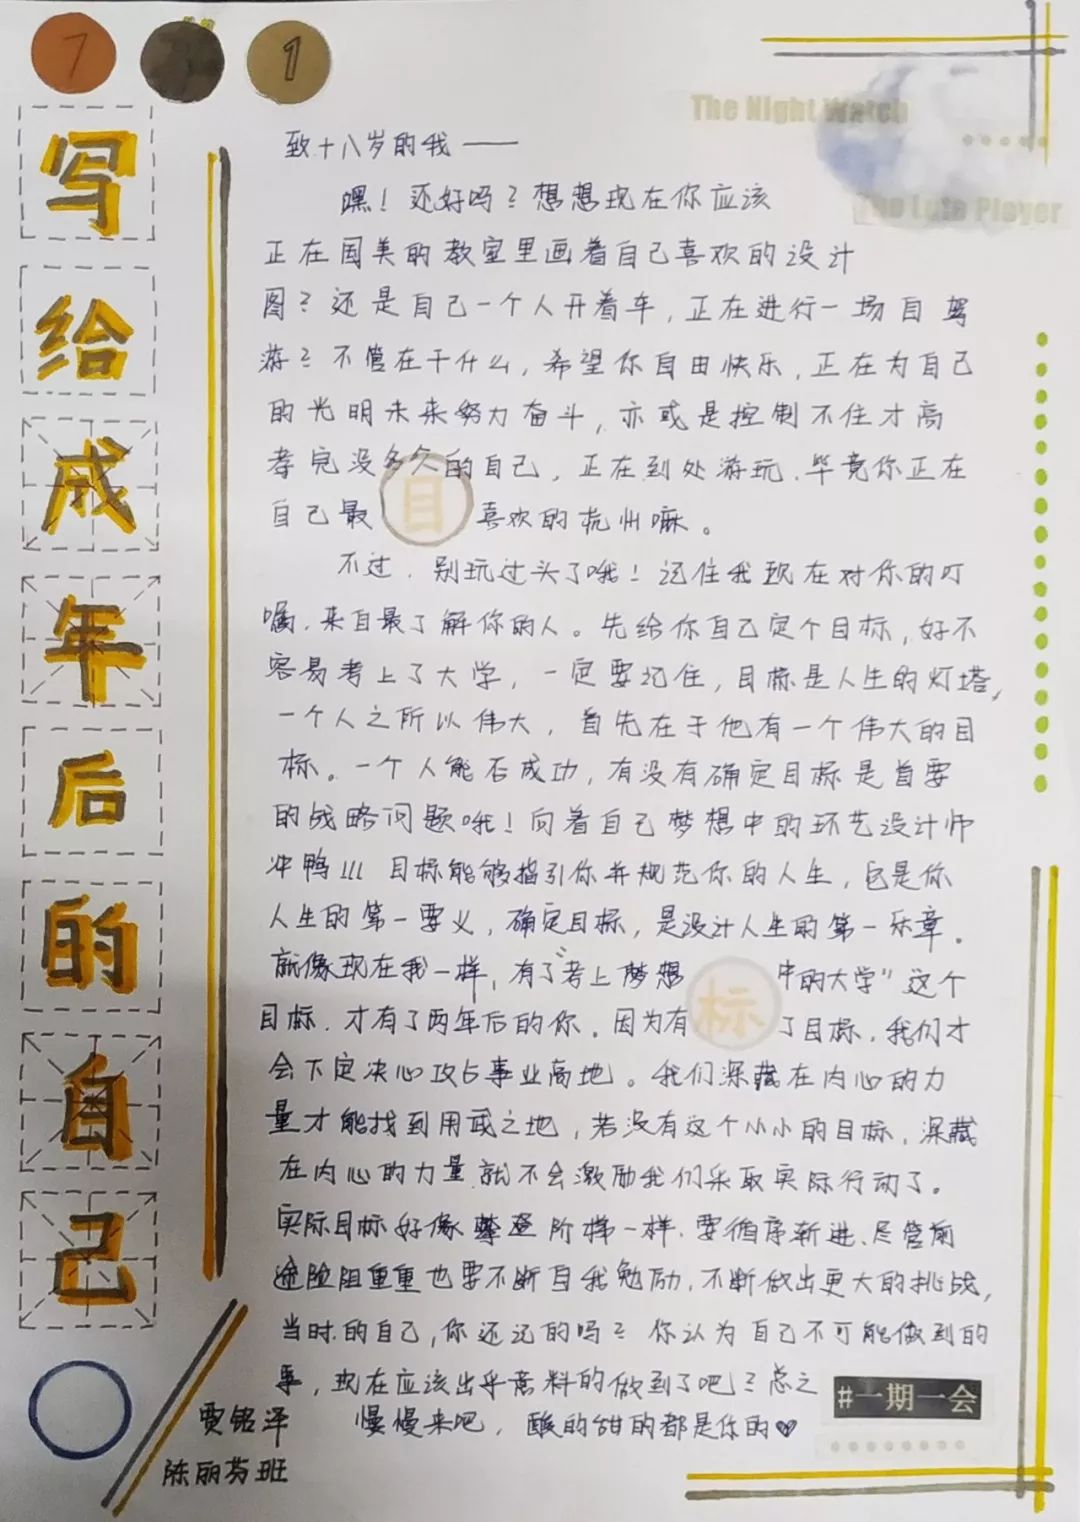 7
1
写给成年后的自己
The Night Watch
The Late Player
致十八岁的我——
嘿！还好吗？想想现在你应该
正在国美的教室里画着自己喜欢的设计
图？还是自己一个人开着车，正在进行一场自驾
游？不管在干什么，希望你自由快乐，正在为自己
的光明未来努力奋斗，亦或是控制不住才高
考完没多久的自己，正在到处游玩，毕竟你正在
自己最喜欢的杭州嘛。
目
不过，别玩过头了哦！记住我现在对你的叮
嘱，来自最了解你的人。先给你自己定个目标，好不
容易考上了大学，一定要记住，目标是人生的灯塔，
一个人之所以伟大，首先在于他有一个伟大的目
标。一个人能否成功，有没有确定目标是首要
的战略问题哦！向着自己梦想中的环艺设计师
冲鸭!!! 目标能够指引你并规范你的人生，它是你
人生的第一要义，确定目标，是设计人生的第一乐章。
就像现在我一样，有了“考上梦想中的大学”这个
目标，才有了两年后的你。因为有了目标，我们才
标
会下定决心攻占事业高地。我们深藏在内心的力
量才能找到用武之地，若没有这个小小的目标，深藏
在内心的力量就不会激励我们采取实际行动了。
实际目标好像攀登阶梯一样，要循序渐进，尽管前
途险阻重重也要不断自我勉励，不断做出更大的挑战，
当时的自己，你还记的吗？你认为自己不可能做到的
事，现在应该出乎意料的做到了吧？总之
慢慢来吧，酸的甜的都是你的
#一期一会
贾铭泽
陈丽芬班